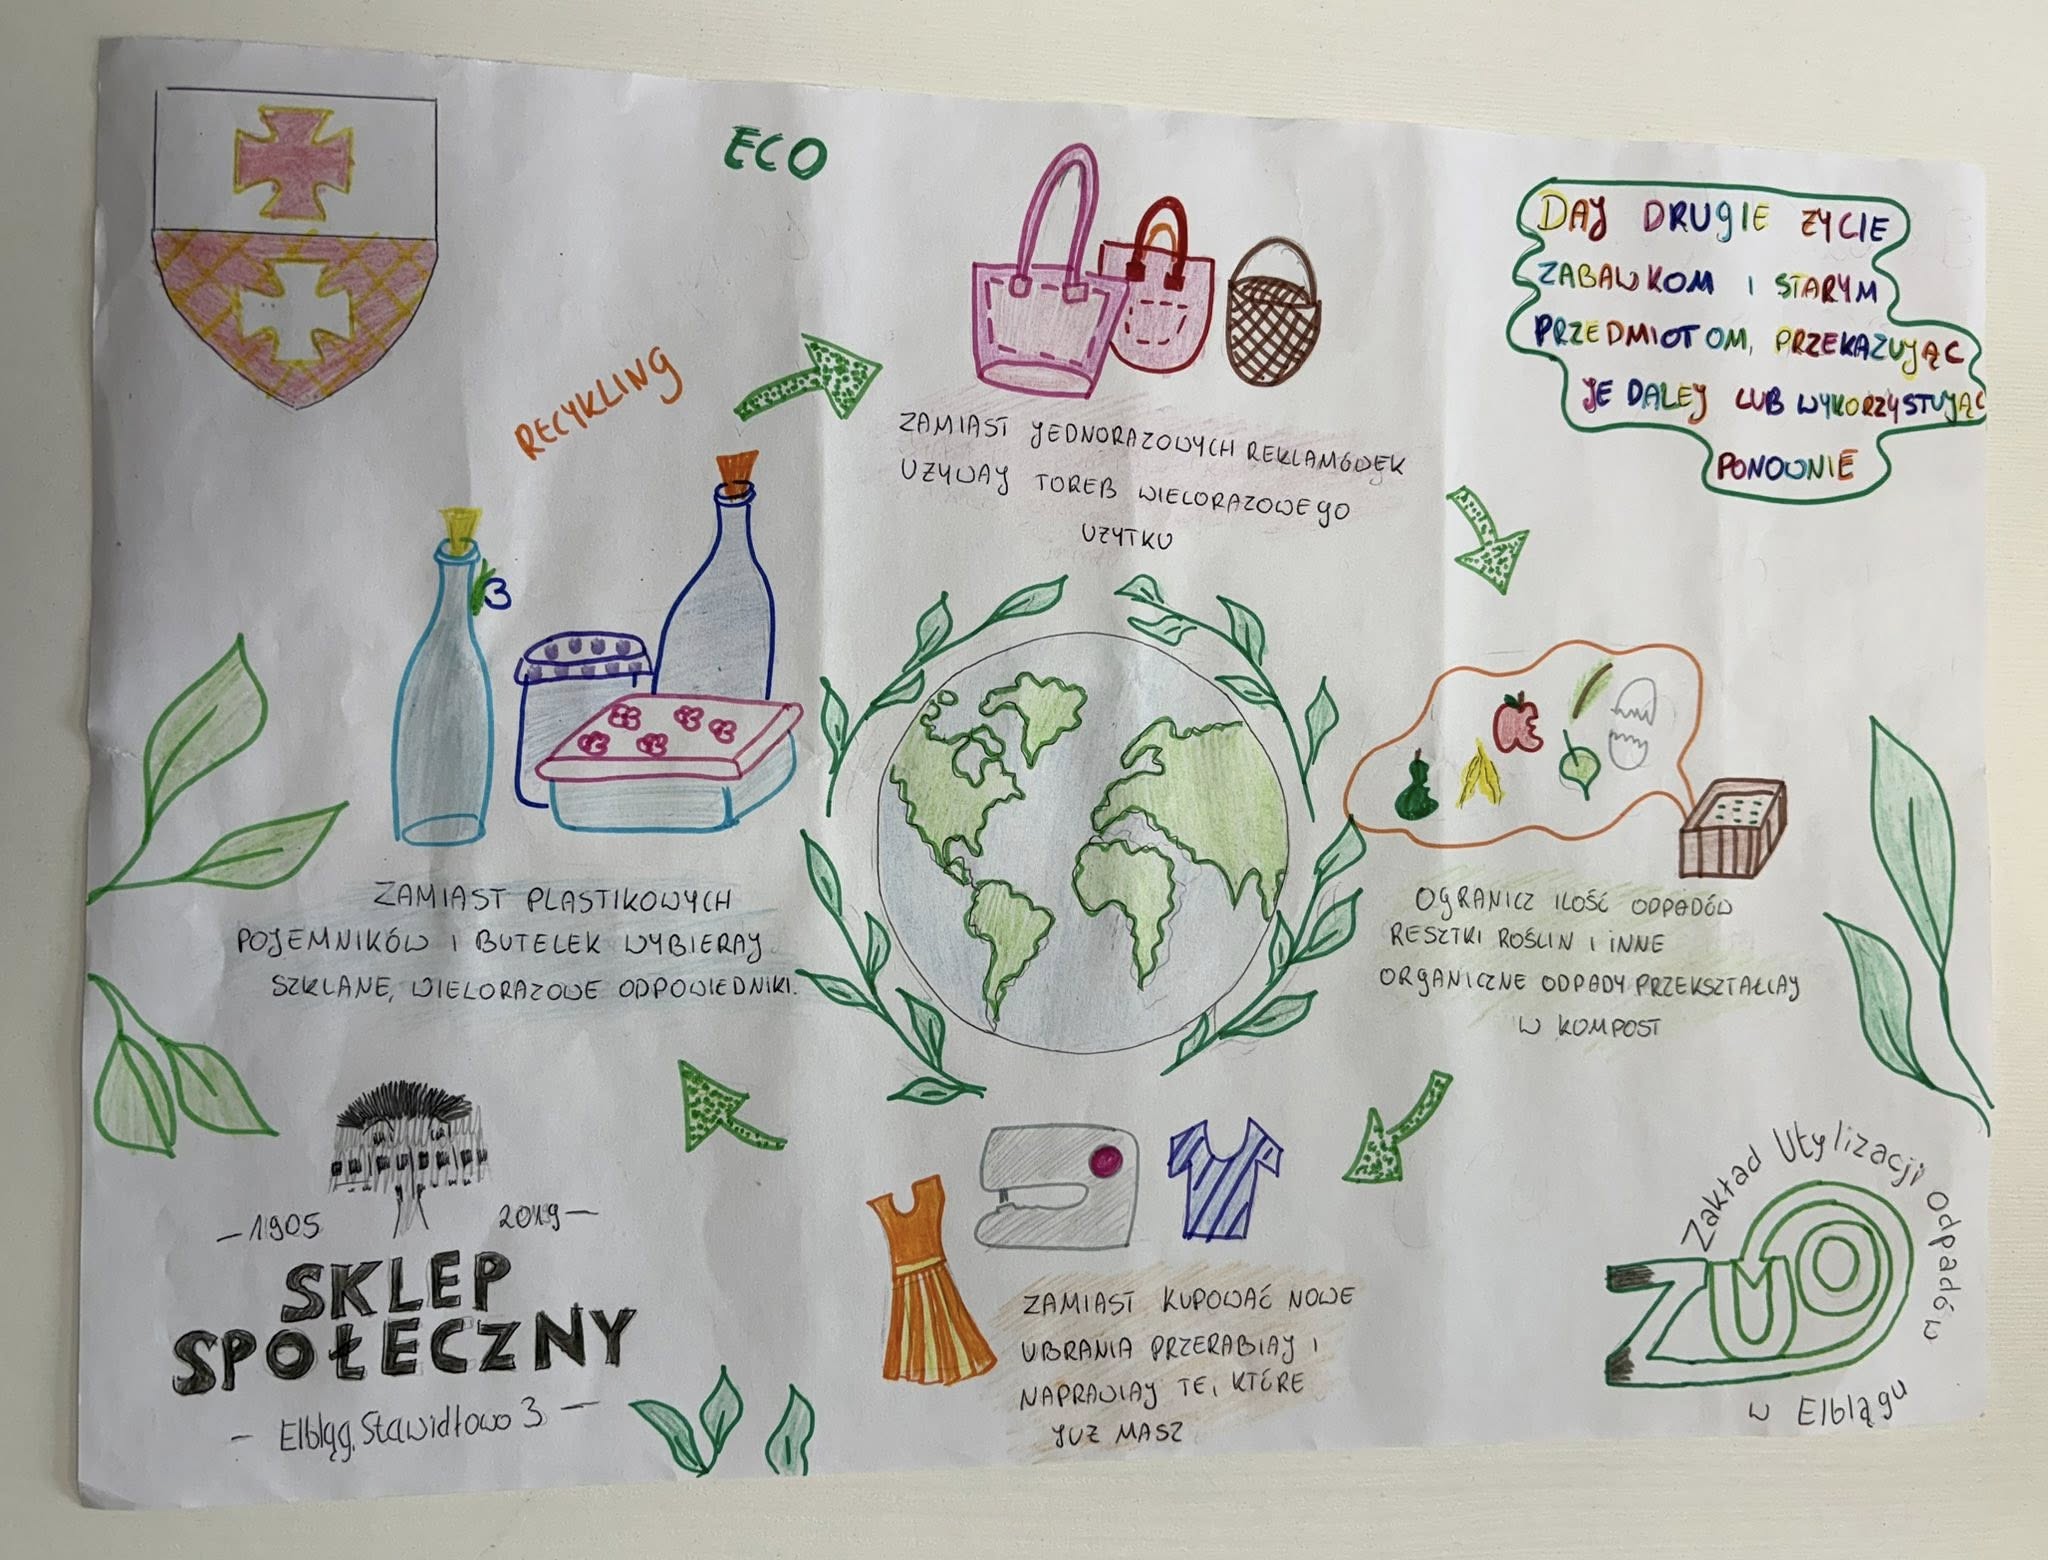 ECO
DAJ DRUGIE ZYCIE
ZABAWKOM I STARYM
PRZEDMIOTOM, PRZEKAZUJĄC
JE DALEJ LUB WYKORZYSTUJĄC
PONOWNIE
RECYKLING
ZAMIAST JEDNORAZOWYCH REKLAMÓWEK
UZYWAJ TOREB WIELORAZOWEGO
UZYTKU
3
ZAMIAST PLASTIKOWYCH
POJEMNIKÓW I BUTELEK WYBIERAJ
SZKLANE, WIELORAZOWE ODPOWIEDNIKI.
OGRANICZ ILOŚĆ ODPADÓW
RESZTKI ROŚLIN I INNE
ORGANICZNE ODPADY PRZEKSZTAŁCAJ
W KOMPOST
ZAMIAST KUPOWAĆ NOWE
UBRANIA PRZERABIAJ I
NAPRAWIAJ TE, KTÓRE
JUZ MASZ
- 1905 2019 -
SKLEP
SPOŁECZNY
- Elbląg, Stawidłowo 3 -
Zakład Utylizacji Odpadów
ZUO
w Elblągu